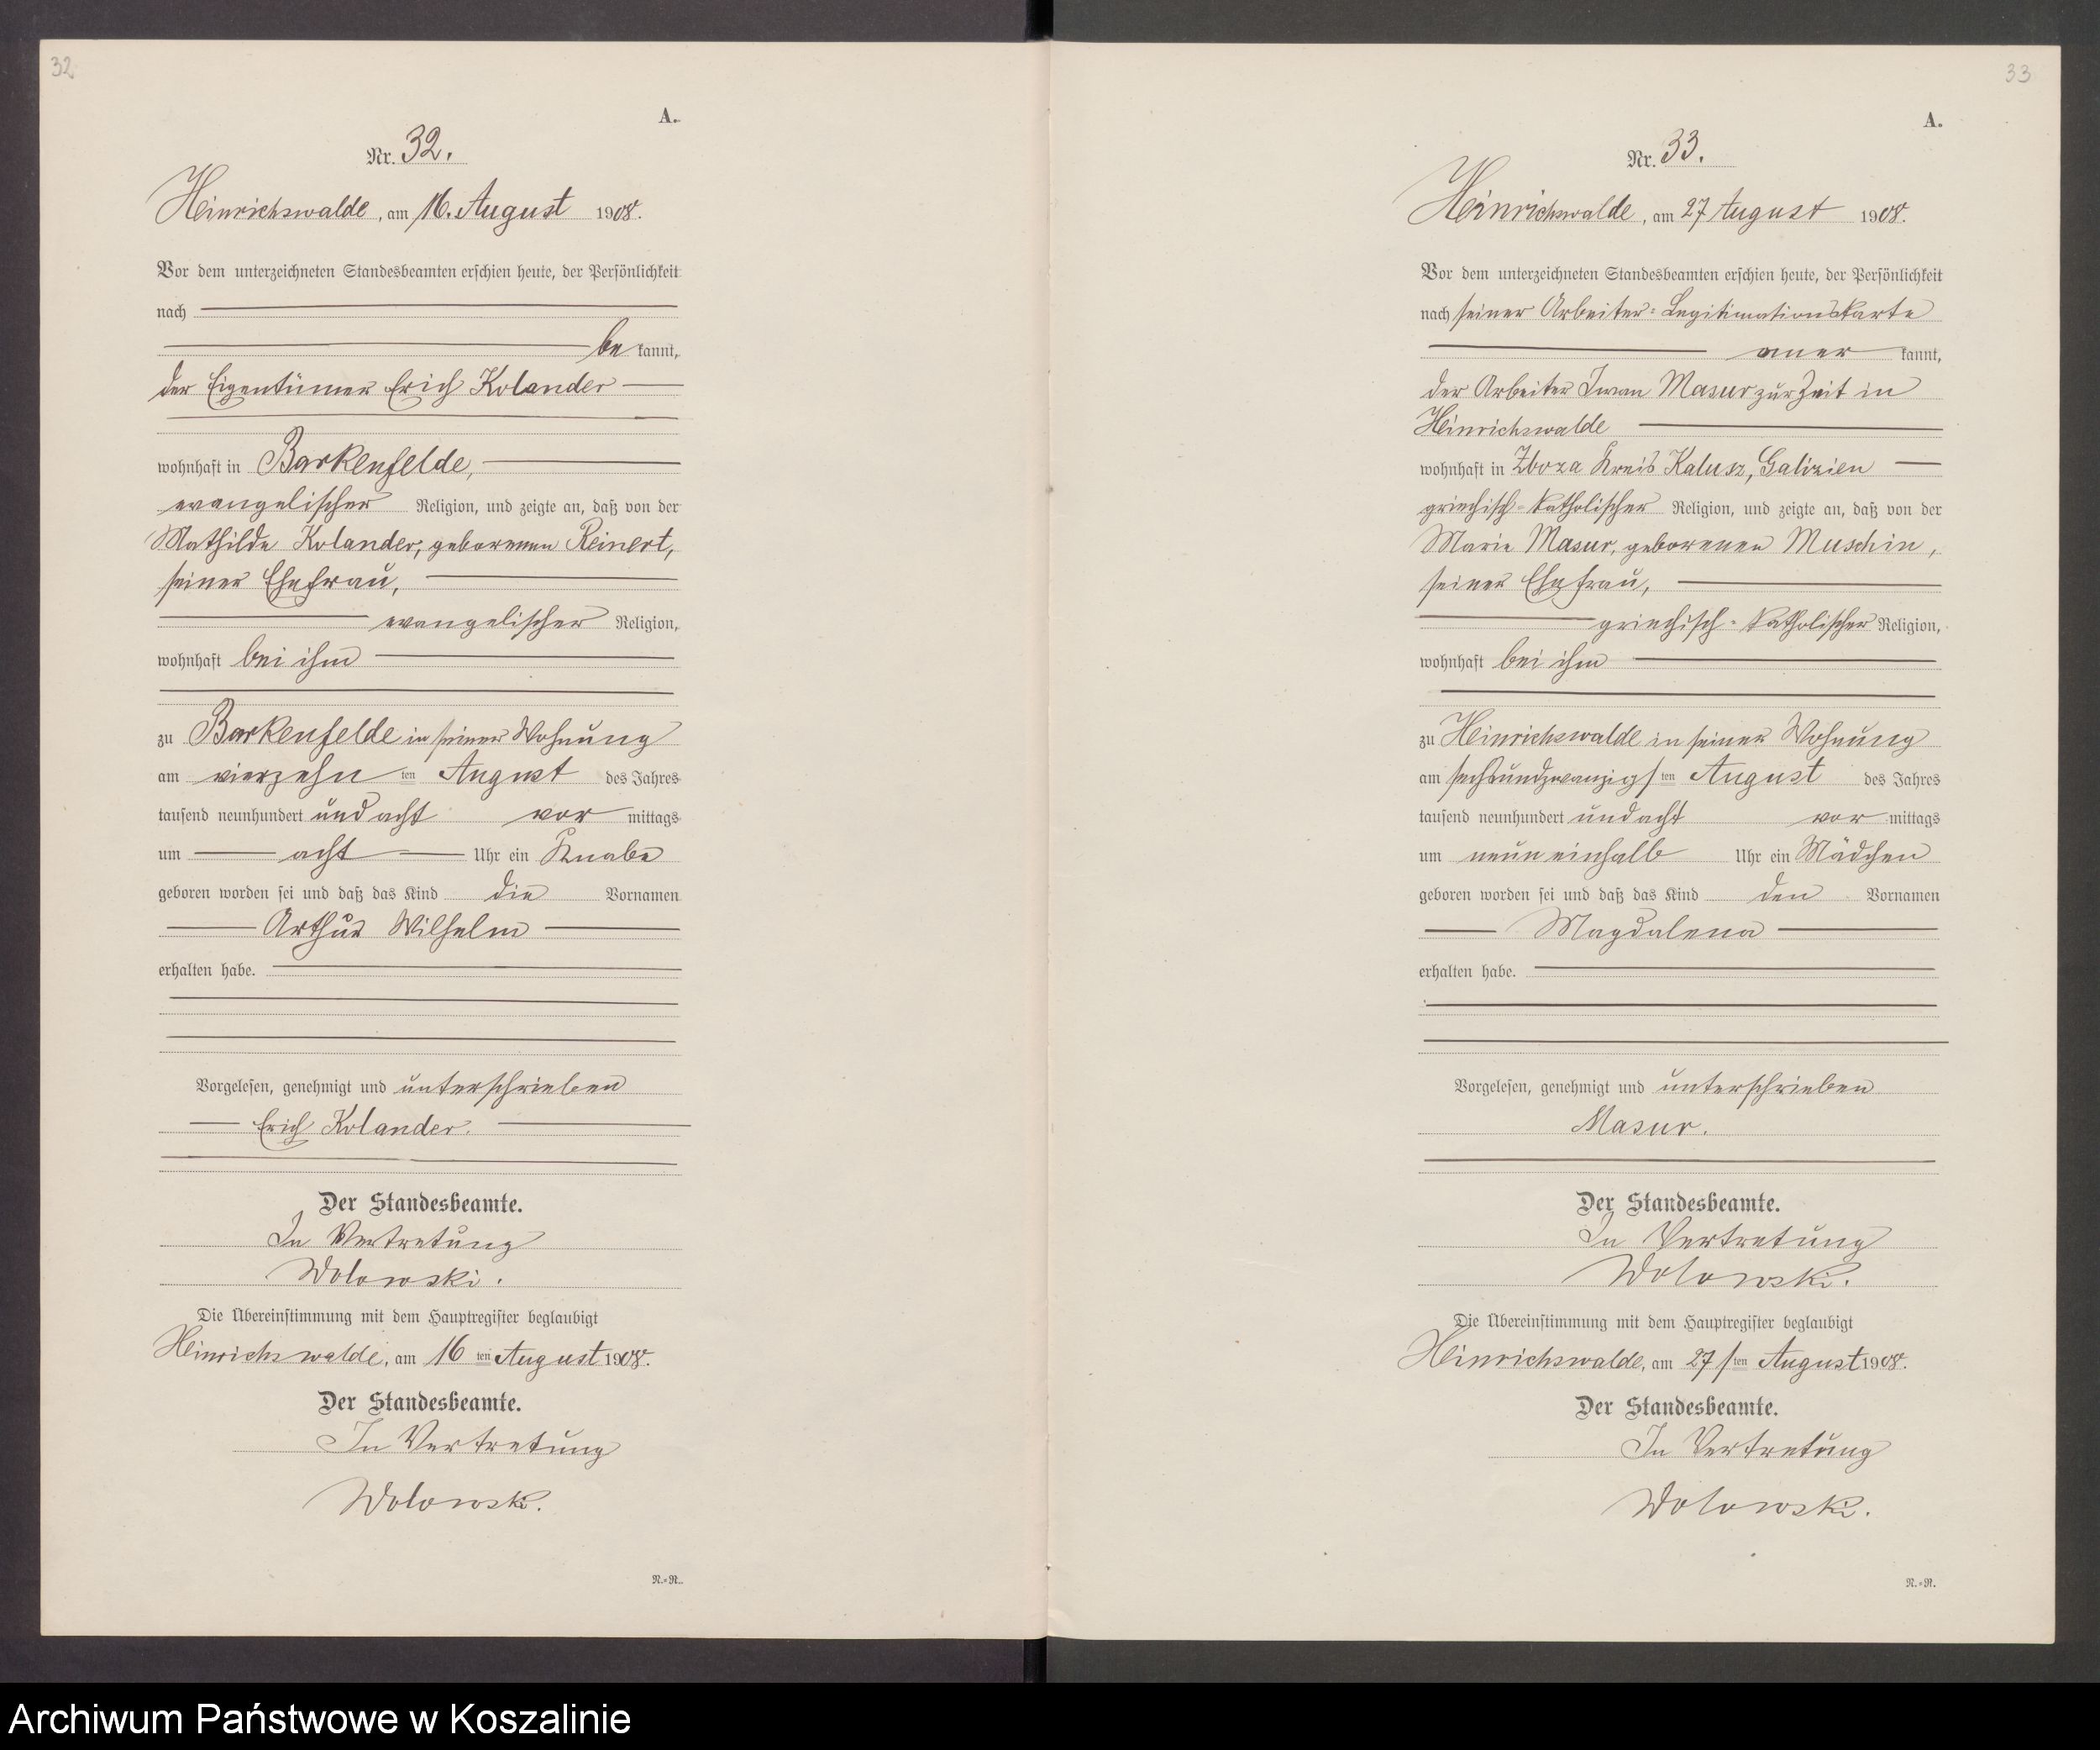 32
A.
Nr. 32.
Heinrichswalde, am 16. August 1908.
Vor dem unterzeichneten Standesbeamten erschien heute, der Persönlichkeit
nach
be kannt,
der Eigentümer Erich Kolander
wohnhaft in Barkenfelde,
evangelischer Religion, und zeigte an, daß von der
Mathilde Kolander, geborenen Reinert,
seiner Ehefrau,
evangelischer Religion,
wohnhaft bei ihm
zu Barkenfelde in seiner Wohnung
am vierzehn ten August des Jahres
tausend neunhundert und acht vor mittags
um acht Uhr ein Knabe
geboren worden sei und daß das Kind die Vornamen
Arthur Wilhelm
erhalten habe.
Vorgelesen, genehmigt und unterschrieben
Erich Kolander.
Der Standesbeamte.
In Vertretung
Wolowski.
Die Übereinstimmung mit dem Hauptregister beglaubigt
Heinrichswalde, am 16 ten August 1908.
Der Standesbeamte.
In Vertretung
Wolowski.
R.=R.
33
A.
Nr. 33.
Heinrichswalde, am 27 August 1908.
Vor dem unterzeichneten Standesbeamten erschien heute, der Persönlichkeit
nach seiner Arbeiter-Legitimationskarte
aner kannt,
der Arbeiter Iwan Masur zur Zeit in
Heinrichswalde
wohnhaft in Zboza Kreis Kalusz, Galizien
griechisch-katholischer Religion, und zeigte an, daß von der
Marie Masur, geborenen Muschin,
seiner Ehefrau,
griechisch-katholischer Religion,
wohnhaft bei ihm
zu Heinrichswalde in seiner Wohnung
am sechsundzwanzigs ten August des Jahres
tausend neunhundert und acht vor mittags
um neun einhalb Uhr ein Mädchen
geboren worden sei und daß das Kind den Vornamen
Magdalena
erhalten habe.
Vorgelesen, genehmigt und unterschrieben
Masur.
Der Standesbeamte.
In Vertretung
Wolowski.
Die Übereinstimmung mit dem Hauptregister beglaubigt
Heinrichswalde, am 27 sten August 1908.
Der Standesbeamte.
In Vertretung
Wolowski.
R.=R.
Archiwum Państwowe w Koszalinie